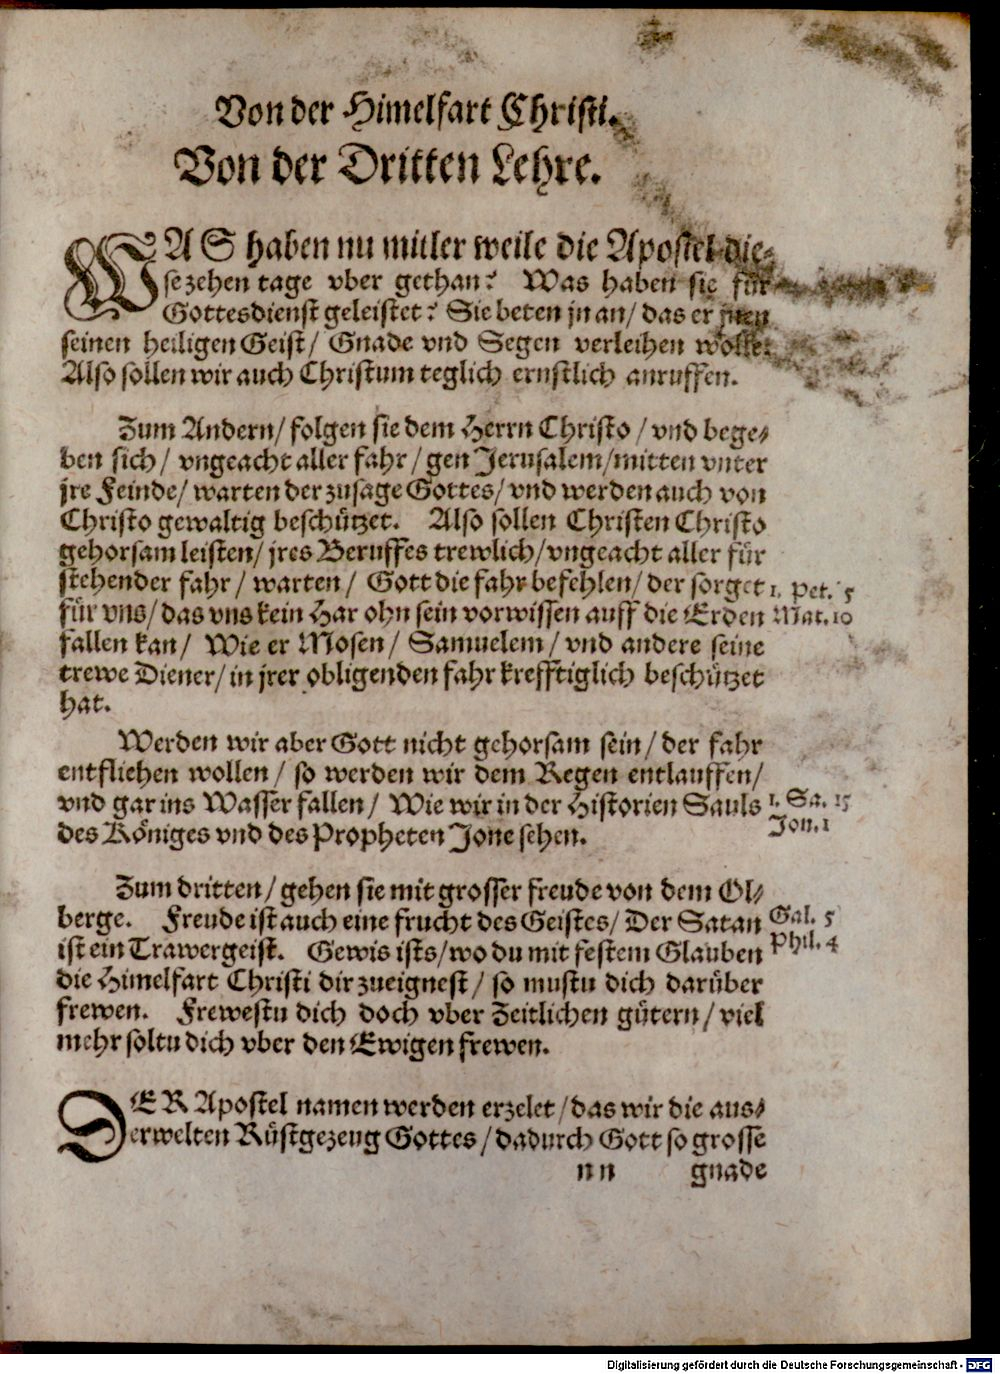 Von der Himelfart Christi.
Von der Dritten Lehre.
WAS haben nu mitler weile die Apostel die-
se zehen tage vber gethan? Was haben sie für
Gottesdienst geleistet? Sie beten jn an/ das er jnen
seinen heiligen Geist/ Gnade vnd Segen verleihen wolle.
Also sollen wir auch Christum teglich ernstlich anruffen.
Zum Andern/ folgen sie dem Herrn Christo/ vnd bege-
ben sich/ vngeacht aller fahr/ gen Jerusalem/ mitten vnter
jre Feinde/ warten der zusage Gottes/ vnd werden auch von
Christo gewaltig beschützet. Also sollen Christen Christo
gehorsam leisten/ jres Beruffes trewlich/ vngeacht aller für
stehender fahr/ warten/ Gott die fahr befehlen/ der sorget 1. Pet. 5
für vns/ das vns kein Har ohn sein vorwissen auff die Erden Mat. 10
fallen kan/ Wie er Mosen/ Samuelem/ vnd andere seine
trewe Diener/ in jrer obligenden fahr krefftiglich beschützet
hat.
Werden wir aber Gott nicht gehorsam sein/ der fahr
entfliehen wollen/ so werden wir dem Regen entlauffen/
vnd gar ins Wasser fallen/ Wie wir in der Historien Sauls 1. Sa. 15
des Königes vnd des Propheten Jone sehen. Jon. 1
Zum dritten/ gehen sie mit grosser freude von dem Ol-
berge. Freude ist auch eine frucht des Geistes/ Der Satan Gal. 5
ist ein Trawergeist. Gewis ists/ wo du mit festem Glauben Phil. 4
die Himelfart Christi dir zueignest/ so mustu dich darüber
frewen. Frewestu dich doch vber Zeitlichen gütern/ viel
mehr soltu dich vber den Ewigen frewen.
DER Apostel namen werden erzelet/ das wir die aus-
erwelten Rüstgezeug Gottes/ dadurch Gott so grosse
nn gnade
Digitalisierung gefördert durch die Deutsche Forschungsgemeinschaft - DFG